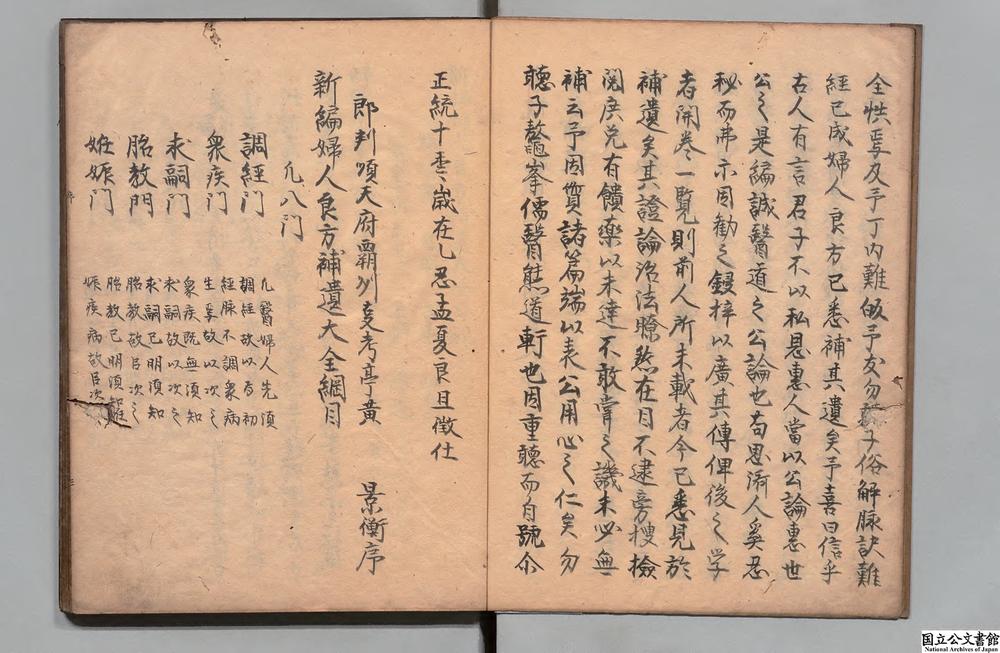 全性焉及予丁内難皈予友勿聽子俗解脉訣難
經已成婦人良方已悉補其遺矣予喜曰信乎
古人有言君子不以私恩惠人當以公論惠世
公之是編誠醫道之公論也苟思済人奚忍
秘而弗示因勸之鋟梓以廣其傳俾後之学
者開卷一覧則前人所未載者今已悉見於
補遺矣其證論治法瞭然在目不逮旁搜撿
閲庶免有饋藥以未達不敢嘗之譏未必無
補云予因贅諸篇端以表公用心之仁矣勿
聽子鼇峯儒醫熊道軒也因重聽而自號尒
正統十
歳在乙丑孟夏良旦徴仕
郎判順天府覇州叓考亭黄
景衡序
新編婦人良方補遺大全綱目
凢八門
調經門
凢醫婦人先須
調經故以為初
衆疾門
經脉不調衆病
生焉故以次之
求嗣門
衆疾既無須知
求嗣故以次之
胎教門
求嗣已明須知
胎教故臣次之
妊娠門
胎教已明須知
娠疾病故臣次
国立公文書館
National Archives of Japan